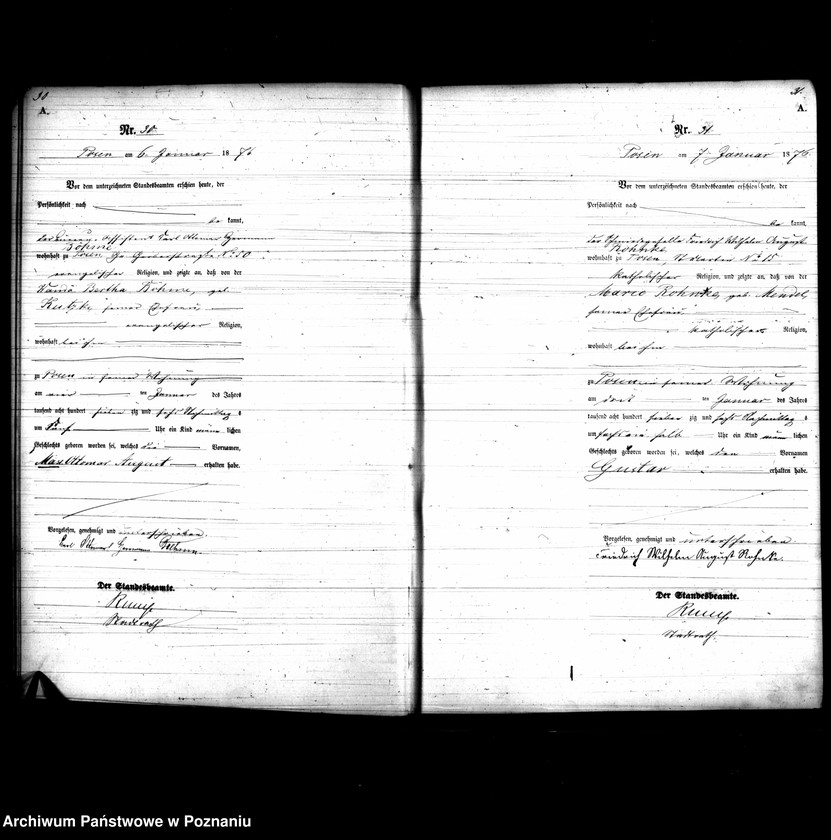 30
A.
Nr. 30.
Posen am 6. Januar 1876
Vor dem unterzeichneten Standesbeamten erschien heute, der
Persönlichkeit nach
be kannt,
Assistent Carl Ottomar Hermann
Böhme
wohnhaft zu Posen No 50
evangelischer Religion, und zeigte an, daß von der
Wanda Bertha Böhme, geb.
seiner Ehefrau
evangelischer Religion,
wohnhaft bei ihm
zu Posen in seiner Wohnung
am vier ten Januar des Jahres
tausend acht hundert sieben zig und sechs Nachmittag s
um fünf Uhr ein Kind männ lichen
Geschlechts geboren worden sei, welches die Vornamen,
Max Ottomar August erhalten habe.
Vorgelesen, genehmigt und unterschrieben
Carl Hermann Böhme
Der Standesbeamte.
Stadtrath
31.
A.
Nr. 31.
Posen am 7. Januar 1876.
Vor dem unterzeichneten Standesbeamten erschien heute, der
Persönlichkeit nach
be kannt,
der Schmiedegeselle Friedrich Wilhelm August
Rohnke
wohnhaft zu Posen, No 15
katholischer Religion, und zeigte an, daß von der
Marie Rohnke, geb. Mendel,
seiner Ehefrau
katholischer Religion,
wohnhaft bei ihm
zu Posen in seiner Wohnung
am drei ten Januar des Jahres
tausend acht hundert sieben zig und sechs Nachmittag s
um halb Uhr ein Kind männ lichen
Geschlechts geboren worden sei, welches den Vornamen
Gustav erhalten habe.
Vorgelesen, genehmigt und unterschrieben
Friedrich Wilhelm August Rohnke.
Der Standesbeamte.
Stadtrath.
Archiwum Państwowe w Poznaniu